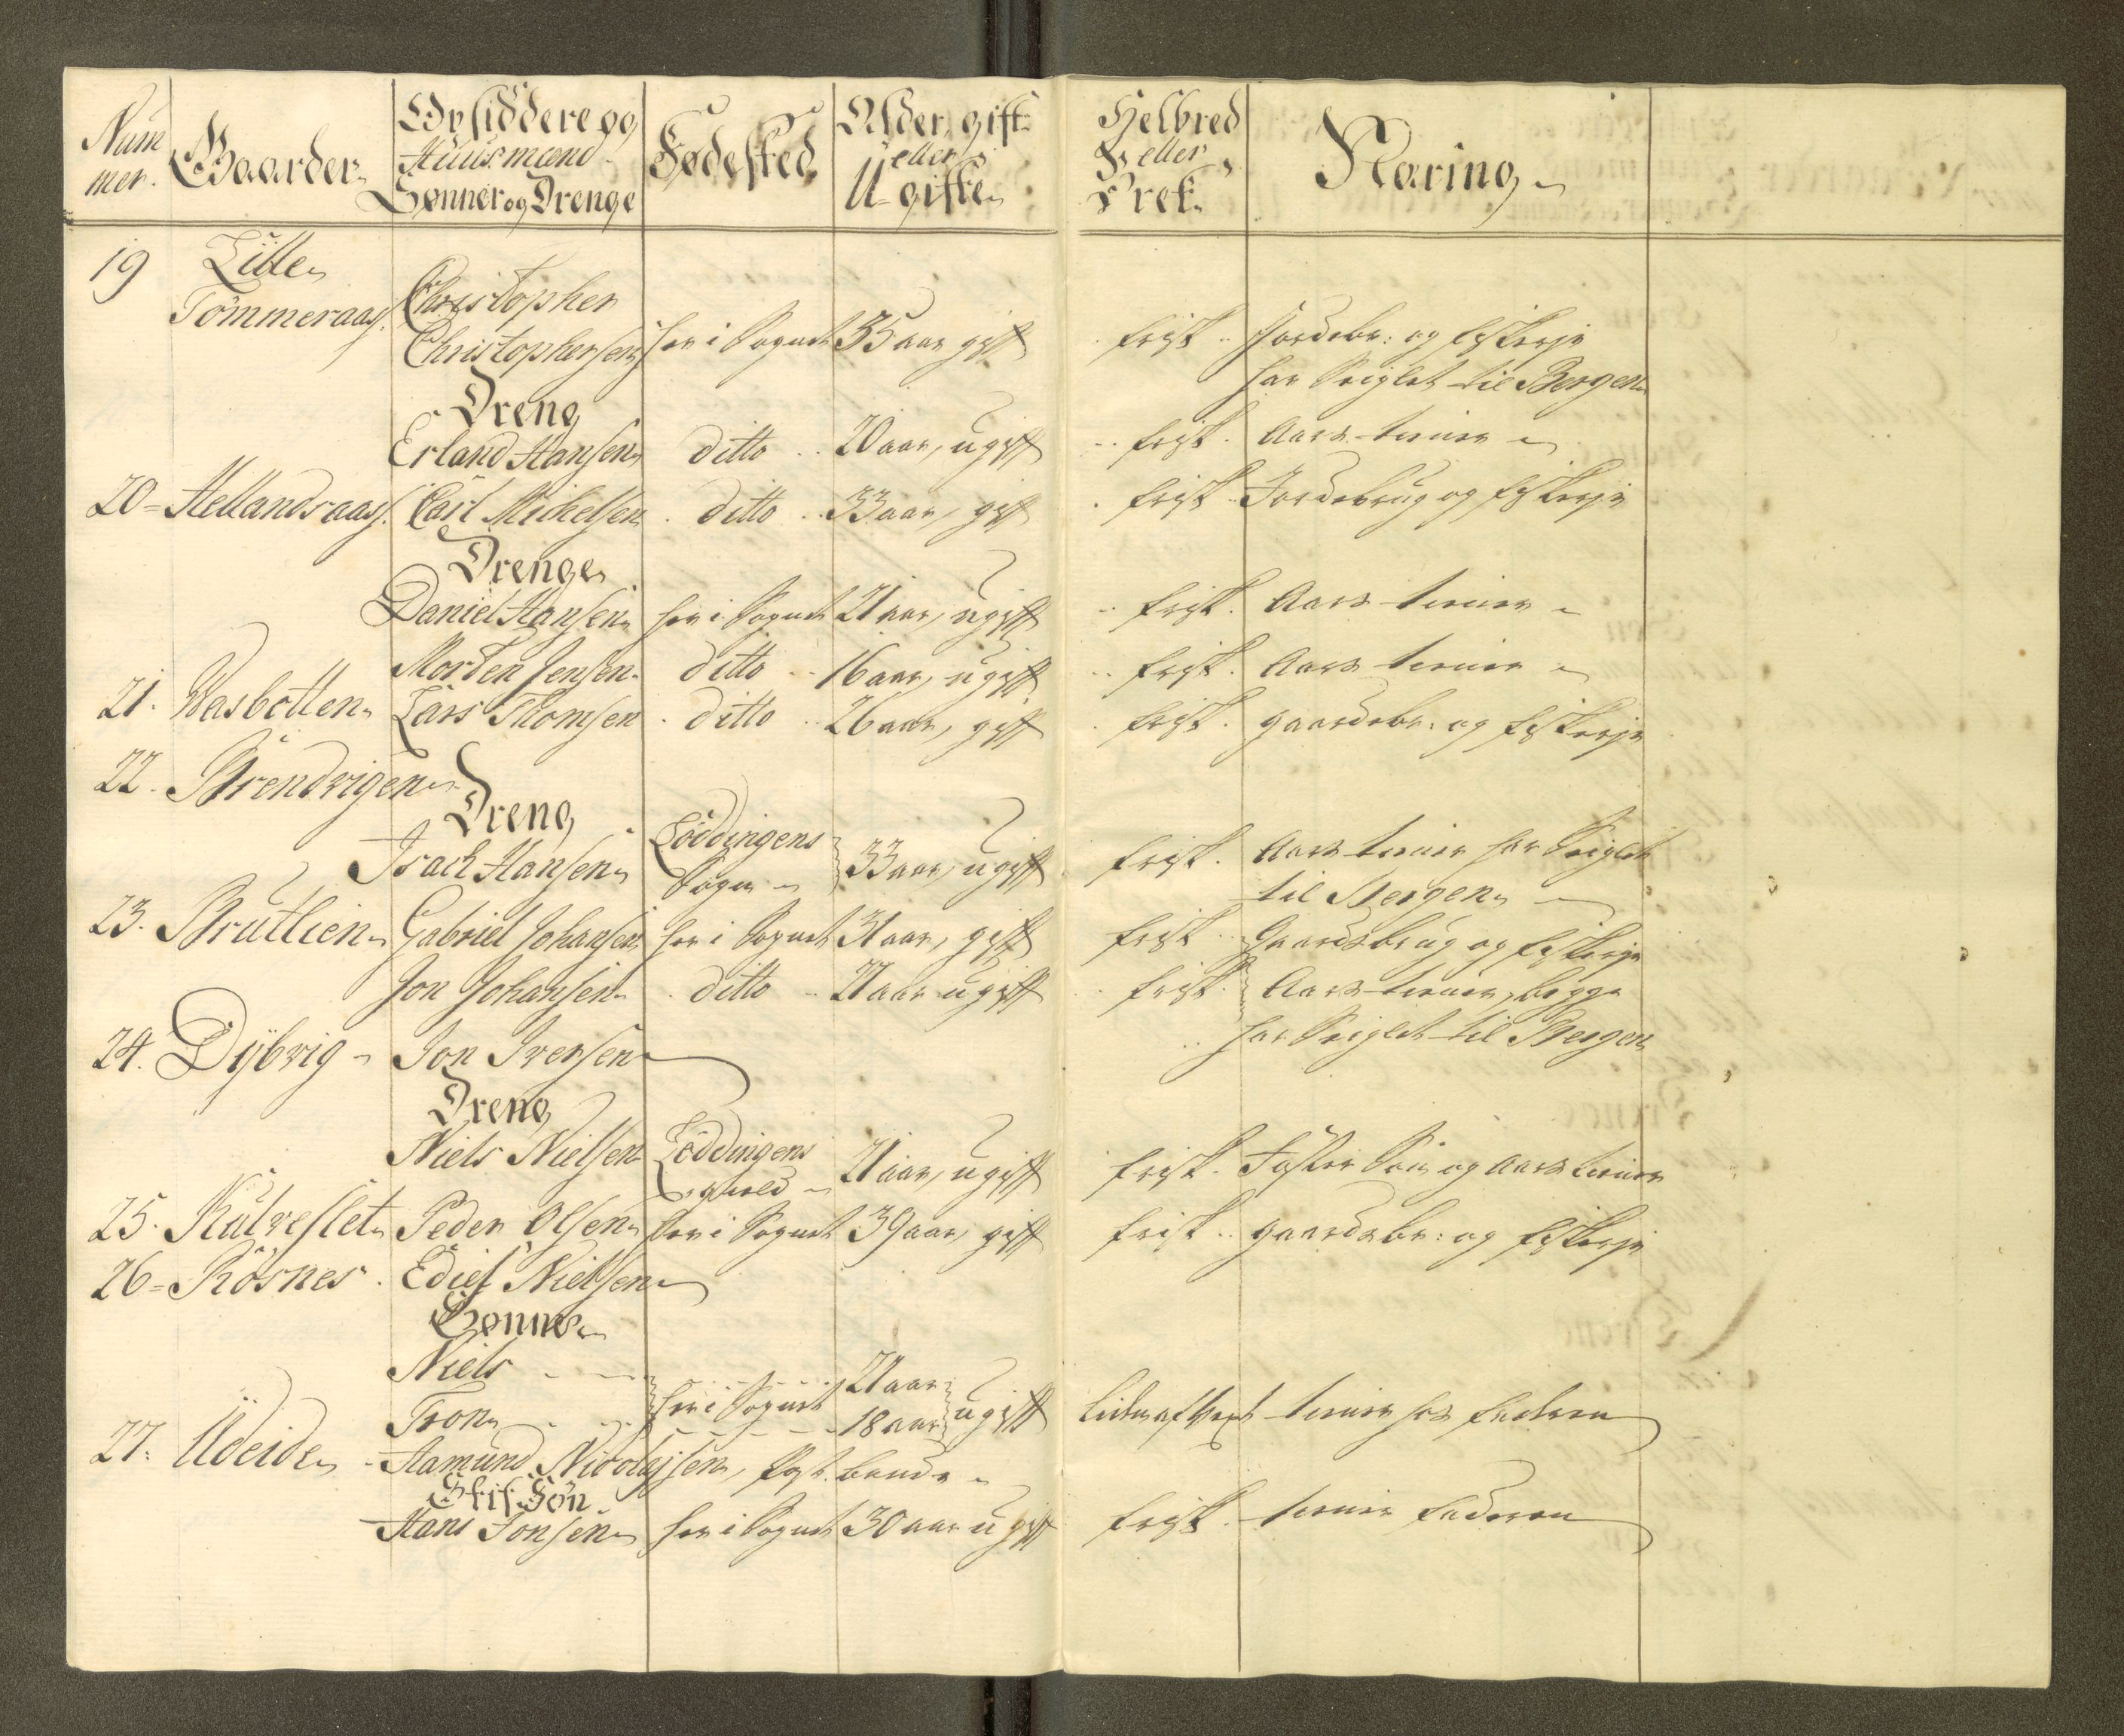 Num
mer.
Gaarder
Opsiddere og
Huusmænd
Sønner og Drenge
Fødested
Alder, gift
eller
Ugifte
Helbred
eller
Næring
19 Lille
Tömmeraas. Christopher
Christophersen her i Sognet 35 aar gift frisk Jordebr: og fiskerje
har Seiglet til Bergen
Dreng
Erland Hansen ditto 20 aar, ugift frisk. Aars tiener
20 Hellandsaas. Carl Michelsen ditto 33 aar, gift frisk Jordebrug og fiskerje
Drenge
Daniel Hansen her i Sognet 21 aar, ugift frisk. Aars tiener
Morten Jensen ditto 16 aar, ugift frisk. Aars tiener
21. Wasbotten Lars Thomsen ditto 26 aar, gift frisk. gaardsbr: og fiskerje
22. Brendvigen
Dreng
Isach Hansen Löddingens
Sogn 33 aar, ugift frisk. Aars tiener har Seiglet
til Bergen
23. Brutlien Gabriel Johansen her i Sognet 31 aar, gift frisk Gaardsbrug og fiskerje
Jon Johansen ditto 21 aar ugift frisk. Aars tiener, begge
har Seiglet til Bergen
24. Dÿbvig Jon Iversen
Dreng
Niels Nielsen Löddingens
21 aar, ugift frisk. Foster Søn og Aars tiener
25. Kulveslet Peder Olsen her i Sognet 39 aar, gift frisk gaardsbr: og fiskerje
26 Rösnes. Edies Nielsen
Sønner
Niels 21 aar
Tron her i Sognet 18 aar ugift liden af Vext tiener hos faderen
27. Udeide Aamund Nicolajsen,
Stif Søn
Hans Jonsen her i Sognet 30 aar ugift frisk. tiener faderen